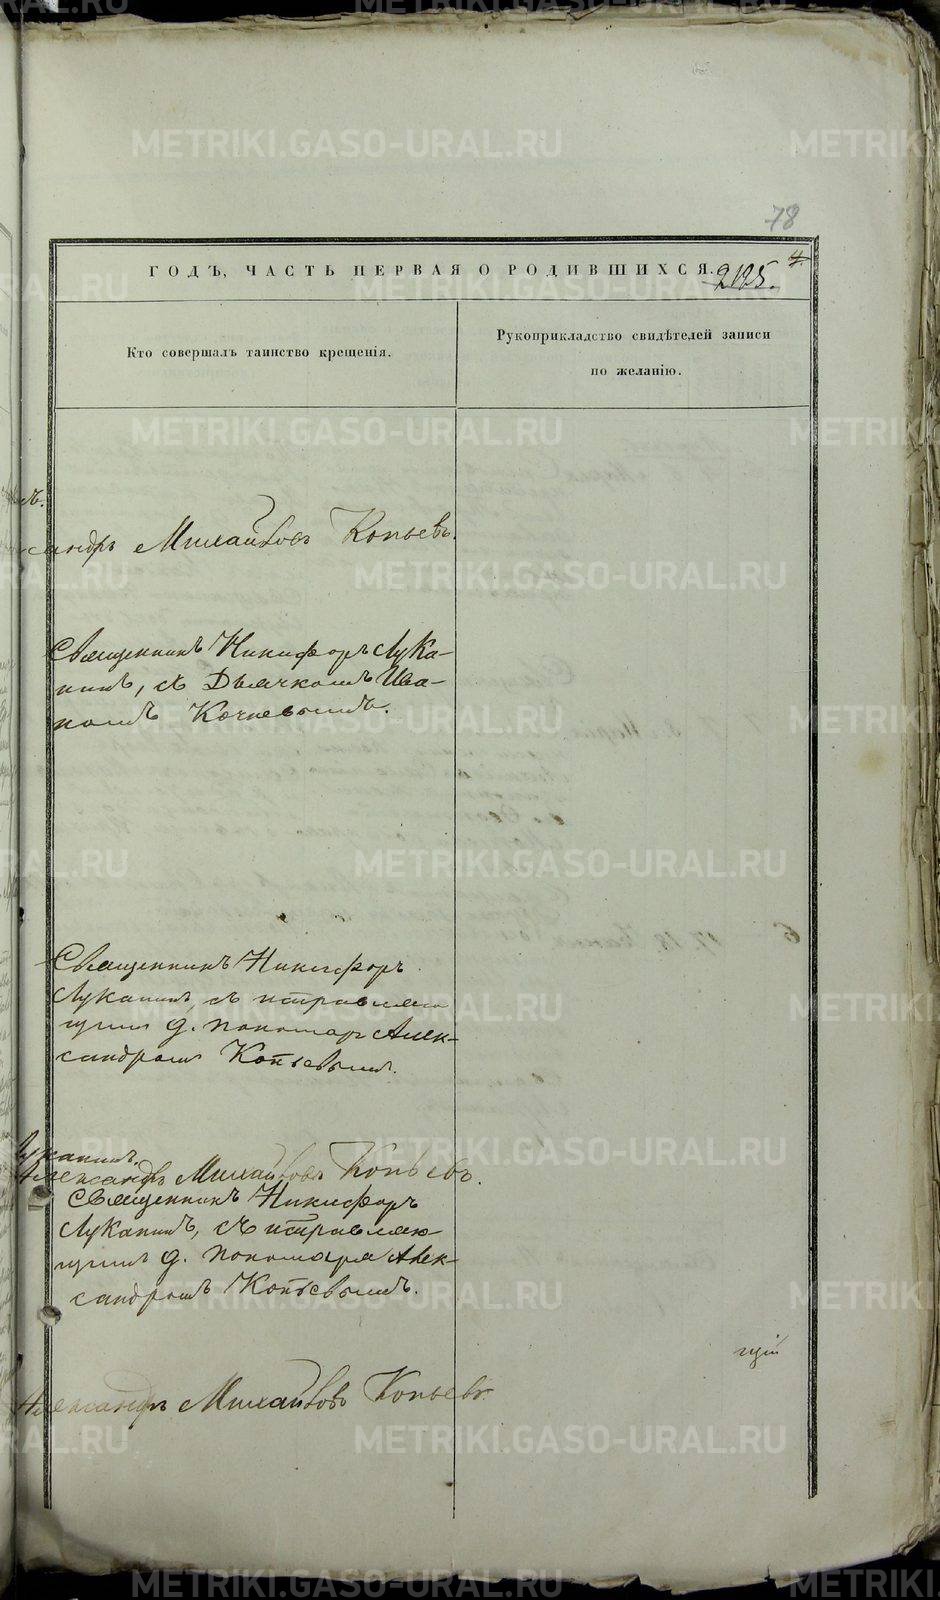 78
ГОДЪ, ЧАСТЬ ПЕРВАЯ О РОДИВШИХСЯ.
2125.
4.
Кто совершалъ таинство крещенія.
Рукоприкладство свидѣтелей записи
по желанію.
сандръ Михайловъ Копьевъ.
Священникъ Никифоръ Лука-
нинъ, съ Дьячкомъ Ива-
номъ Кочневымъ.
Священникъ Никифоръ
Луканинъ, съ исправляю
щимъ д. пономаря Алек-
сандромъ Копьевымъ.
Луканинъ.
Александръ Михайловъ Копьевъ.
Священникъ Никифоръ
Луканинъ, съ исправляю-
щимъ д. пономаря Алек-
сандромъ Копьевымъ.
щій
Александръ Михайловъ Копьевъ.
METRIKI.GASO-URAL.RU